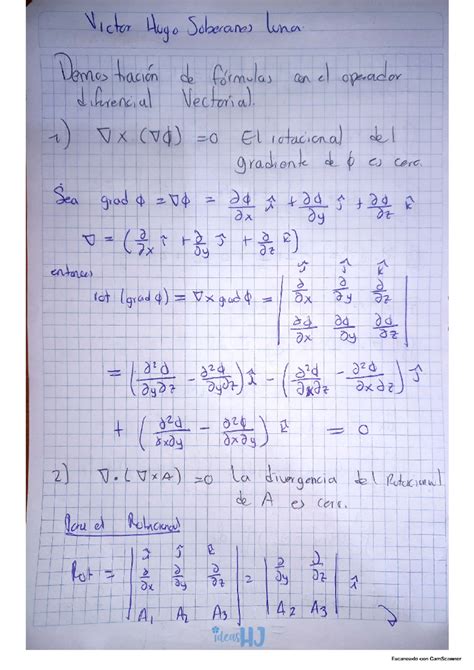 Victor Hugo Soberanes Luna.
Demostración de fórmulas con el operador
diferencial Vectorial.
1) ∇ × (∇φ) = 0 El rotacional del
gradiente de φ es cero.
Sea grad φ = ∇φ = ∂φ/∂x î + ∂φ/∂y ĵ + ∂φ/∂z k̂
∇ = (∂/∂x î + ∂/∂y ĵ + ∂/∂z k̂)
entonces
rot (grad φ) = ∇ × grad φ = | î ĵ k̂ |
| ∂/∂x ∂/∂y ∂/∂z |
| ∂φ/∂x ∂φ/∂y ∂φ/∂z |
= (∂²φ/∂y∂z − ∂²φ/∂y∂z) î − (∂²φ/∂x∂z − ∂²φ/∂x∂z) ĵ
+ (∂²φ/∂x∂y − ∂²φ/∂x∂y) k̂ = 0
2) ∇ · (∇ × A) = 0 la divergencia del Rotacional
de A es cero.
Para el Rotacional
Rot = | î ĵ k̂ | = | ∂/∂y ∂/∂z | î
| ∂/∂x ∂/∂y ∂/∂z |
| A1 A2 A3 | | A2 A3 |
ideasHJ
Escaneado con CamScanner